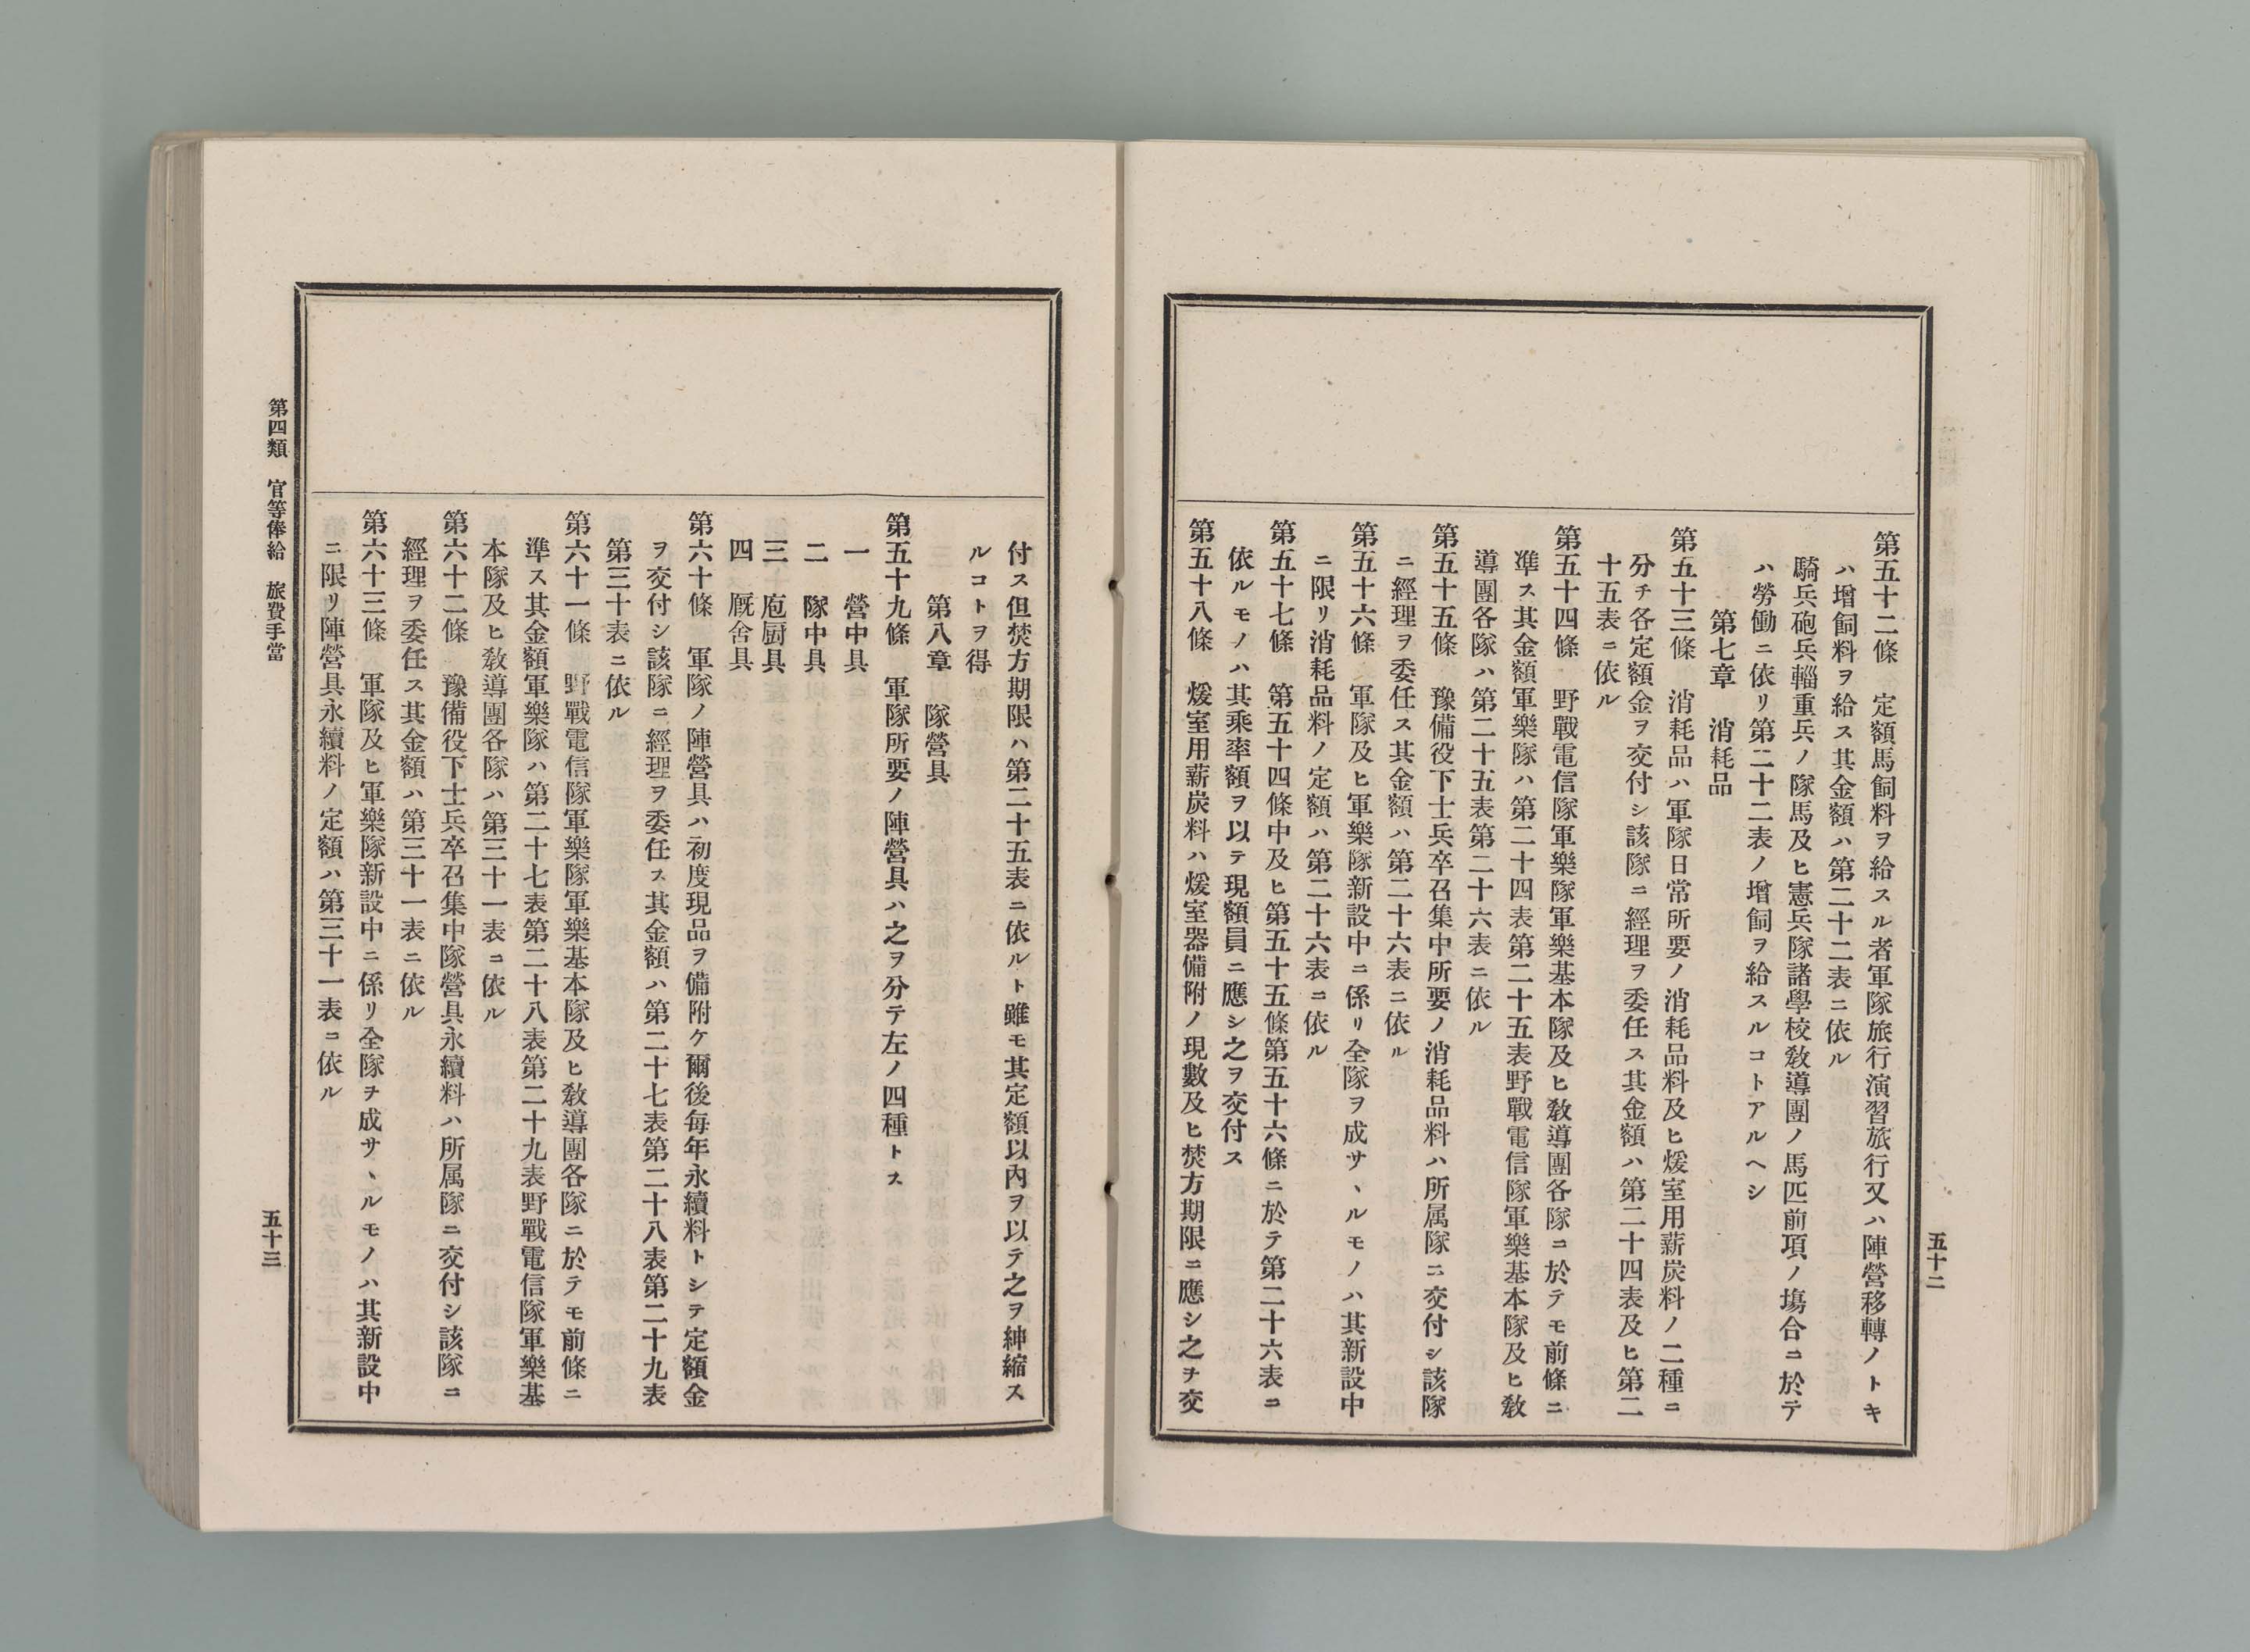 第五十二條　定額馬飼料ヲ給スル者軍隊旅行演習旅行又ハ陣營移轉ノトキ
ハ增飼料ヲ給ス其金額ハ第二十二表ニ依ル
騎兵砲兵輜重兵ノ隊馬及ヒ憲兵隊諸學校敎導團ノ馬匹前項ノ塲合ニ於テ
ハ勞働ニ依リ第二十二表ノ增飼ヲ給スルコトアルヘシ
第七章　消耗品
第五十三條　消耗品ハ軍隊日常所要ノ消耗品料及ヒ煖室用薪炭料ノ二種ニ
分チ各定額金ヲ交付シ該隊ニ經理ヲ委任ス其金額ハ第二十四表及ヒ第二
十五表ニ依ル
第五十四條　野戰電信隊軍樂隊軍樂基本隊及ヒ敎導團各隊ニ於テモ前條ニ
準ス其金額軍樂隊ハ第二十四表第二十五表野戰電信隊軍樂基本隊及ヒ敎
導團各隊ハ第二十五表第二十六表ニ依ル
第五十五條　豫備役下士兵卒召集中所要ノ消耗品料ハ所属隊ニ交付シ該隊
ニ經理ヲ委任ス其金額ハ第二十六表ニ依ル
第五十六條　軍隊及ヒ軍樂隊新設中ニ係リ全隊ヲ成サヽルモノハ其新設中
ニ限リ消耗品料ノ定額ハ第二十六表ニ依ル
第五十七條　第五十四條中及ヒ第五十五條第五十六條ニ於テ第二十六表ニ
依ルモノハ其乘率額ヲ以テ現額員ニ應シ之ヲ交付ス
第五十八條　煖室用薪炭料ハ煖室器備附ノ現數及ヒ焚方期限ニ應シ之ヲ交
五十二
付ス但焚方期限ハ第二十五表ニ依ルト雖モ其定額以內ヲ以テ之ヲ紳縮ス
ルコトヲ得
第八章　隊營具
第五十九條　軍隊所要ノ陣營具ハ之ヲ分テ左ノ四種トス
一　營中具
二　隊中具
三　庖厨具
四　厩舍具
第六十條　軍隊ノ陣營具ハ初度現品ヲ備附ケ爾後每年永續料トシテ定額金
ヲ交付シ該隊ニ經理ヲ委任ス其金額ハ第二十七表第二十八表第二十九表
第三十表ニ依ル
第六十一條　野戰電信隊軍樂隊軍樂基本隊及ヒ敎導團各隊ニ於テモ前條ニ
準ス其金額軍樂隊ハ第二十七表第二十八表第二十九表野戰電信隊軍樂基
本隊及ヒ敎導團各隊ハ第三十一表ニ依ル
第六十二條　豫備役下士兵卒召集中隊營具永續料ハ所属隊ニ交付シ該隊ニ
經理ヲ委任ス其金額ハ第三十一表ニ依ル
第六十三條　軍隊及ヒ軍樂隊新設中ニ係リ全隊ヲ成サヽルモノハ其新設中
ニ限リ陣營具永續料ノ定額ハ第三十一表ニ依ル
第四類　官等俸給　旅費手當
五十三